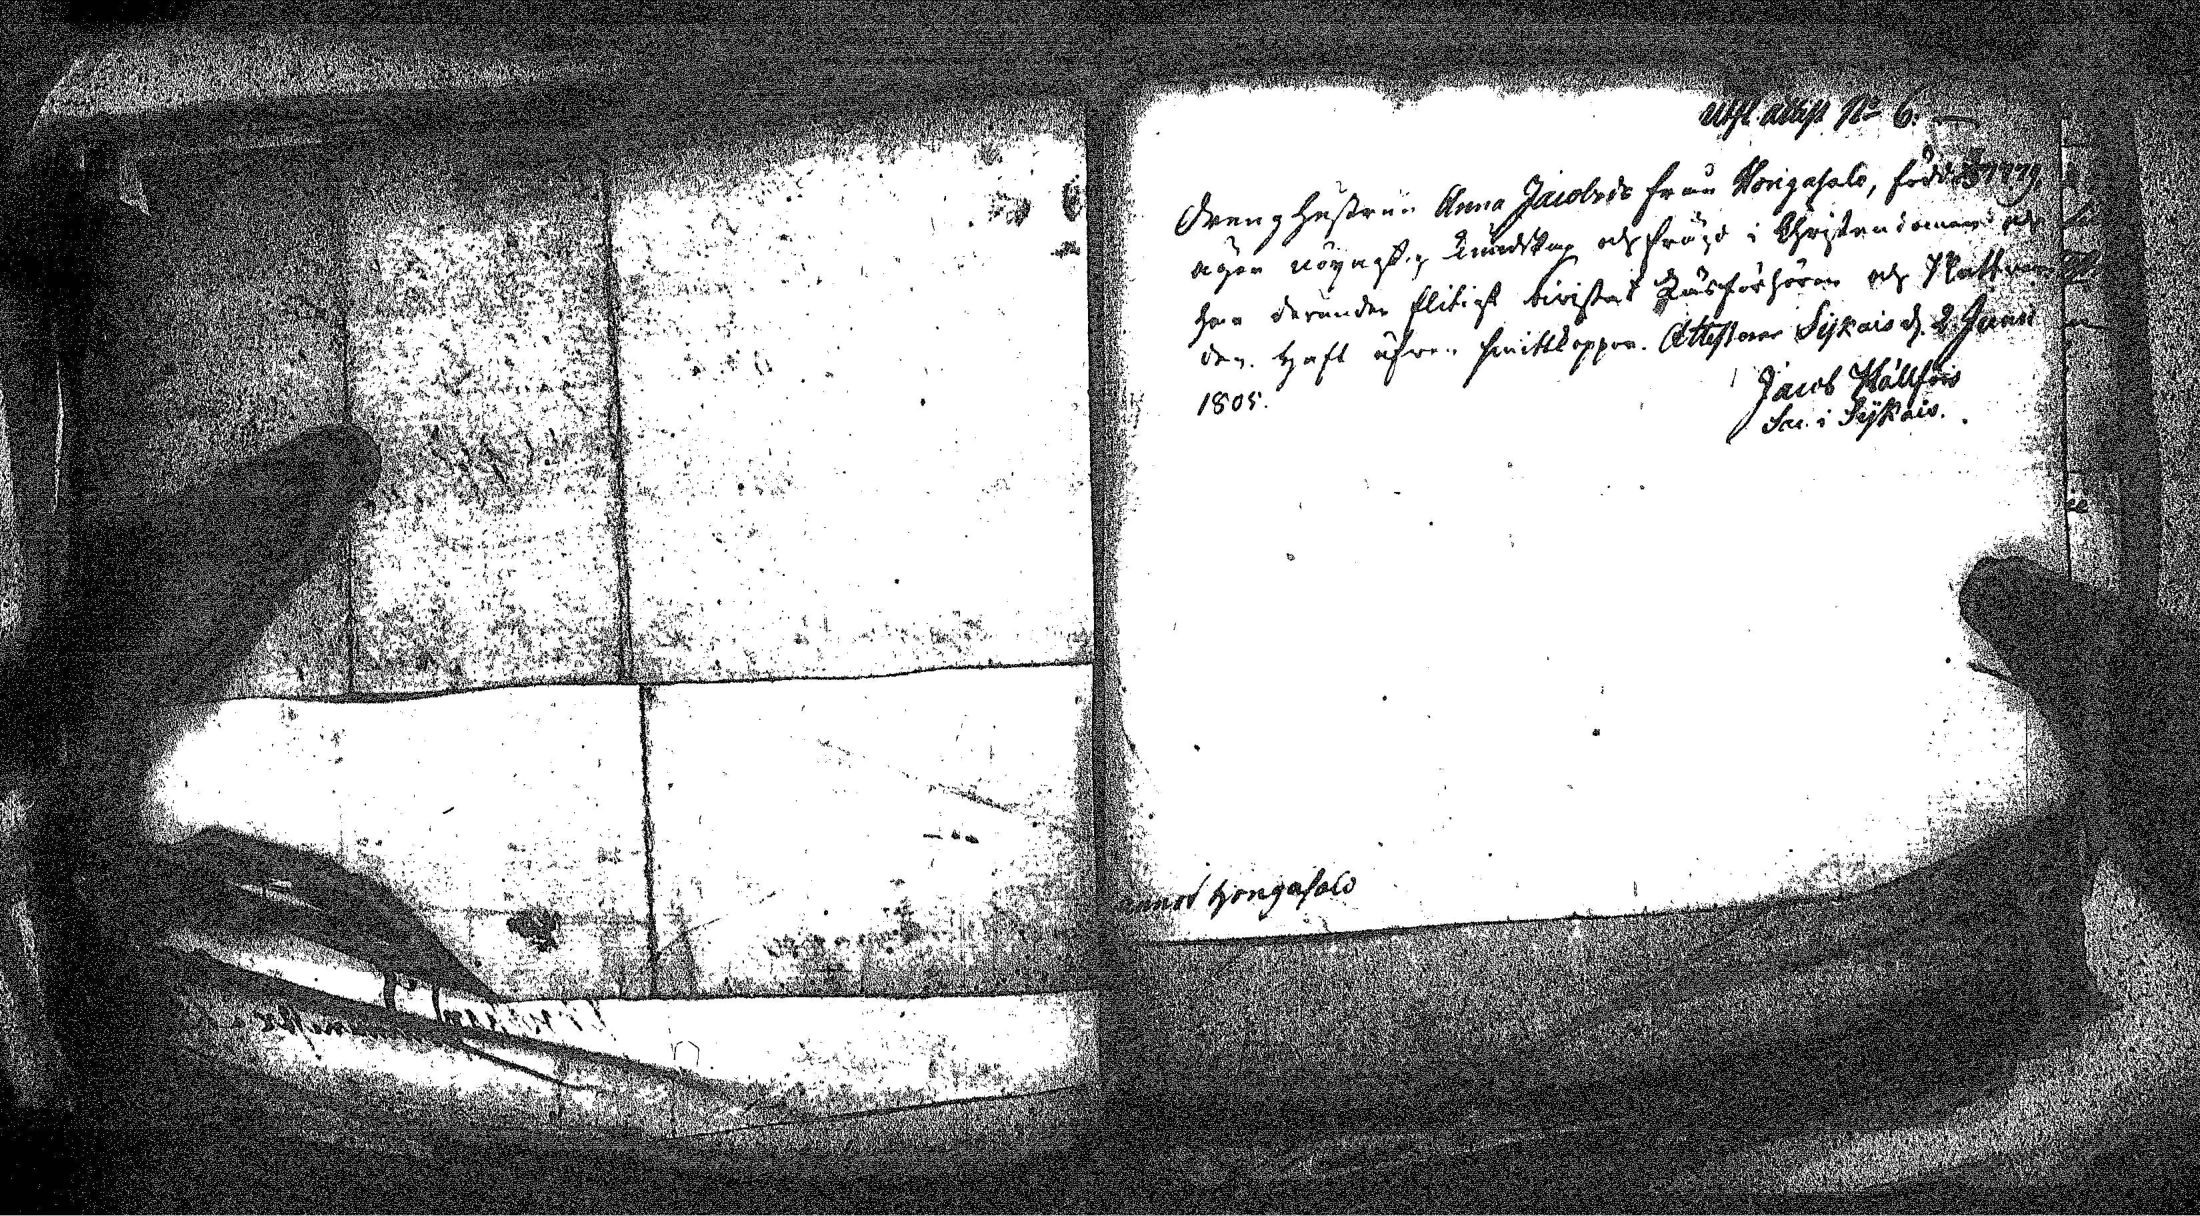 Utfl. attest No 6.
Dreng hustrun Anna Jacobsdr från Hongasalo, född 1779,
äger nöyagtig Kundskap och frägd i Christendomen och
har derunder flitigt bivistat Läsförhören och Nattvar
den. Haft äfven Smittkoppor. Attesterar Sijkais d. 2 Junii
1805.
Jacob Hällfors
Sac. i Sijkais.
Hongasalo